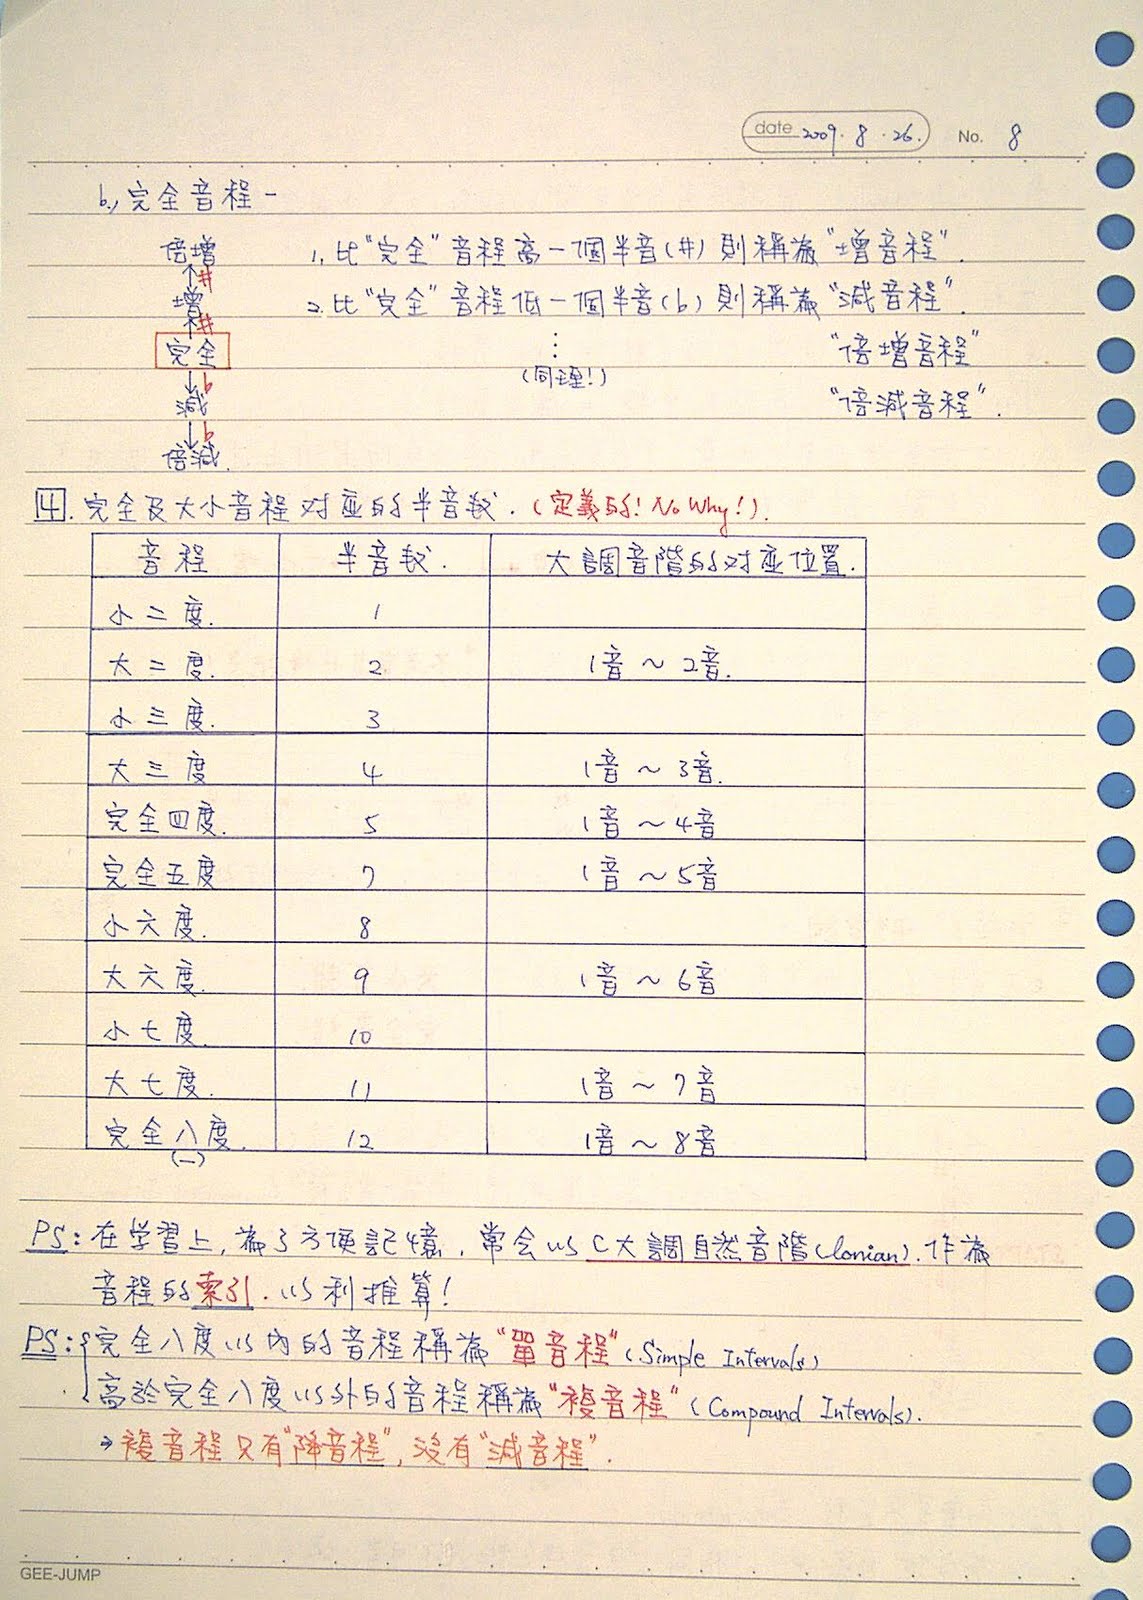 date 2009.8.26. No. 8
b., 完全音程-
倍增
↑#
增
↑#
完全
↓b
減
↓b
倍減.
1. 比"完全"音程高一個半音(#)則稱為"增音程".
2. 比"完全"音程低一個半音(b)則稱為"減音程".
⋮ "倍增音程"
(同理!) "倍減音程".
4. 完全及大小音程对应的半音数. (定義的! No Why!).
音程 半音数. 大調音階的对应位置.
小二度. 1
大二度. 2 1音~2音.
小三度. 3
大三度 4 1音~3音.
完全四度. 5 1音~4音
完全五度 7 1音~5音
小六度. 8
大六度. 9 1音~6音
小七度. 10
大七度. 11 1音~7音
完全八度. 12 1音~8音
(一)
PS: 在学習上, 為了方便記憶, 常会以C大調自然音階(Ionian). 作為
音程的索引. 以利推算!
PS: 完全八度以內的音程稱為"單音程"(Simple Intervals)
高於完全八度以外的音程稱為"複音程"(Compound Intervals).
→複音程只有"降音程", 沒有"減音程".
GEE-JUMP